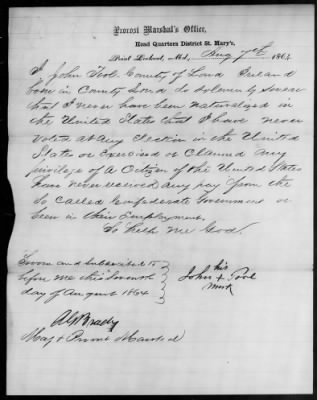 Provost Marshal's Office,
Head Quarters District St. Mary's,
Point Lookout, Md., Aug 7th 1864
I John Pool County of Ireland
born in County do Solemnly Swear
that I never have been naturalized in
the United States that I have never
Voted at any Election in the United
States or Exercised or Claimed any
privilege of a Citizen of the United States
have never received any pay from the
So Called Confederate Government or
been in their Employment.
So help me God.
Sworn and Subscribed to
before me this Seventh
day of August 1864
his
John + Pool
mark
A G Brady
Maj & Provost Marshal